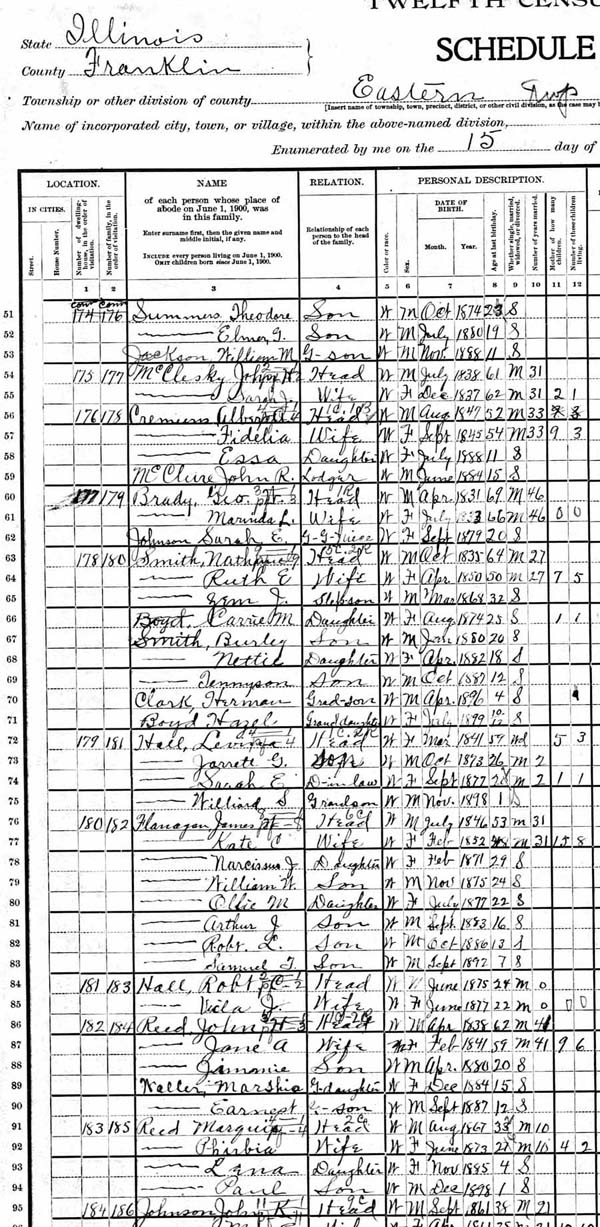 TWELFTH CENSU
State Illinois
SCHEDULE
County Franklin
Township or other division of county Eastern Twp
[Insert name of township, town, precinct, district, or other civil division, as the case may b
Name of incorporated city, town, or village, within the above-named division,
Enumerated by me on the 15 day of
LOCATION. NAME RELATION. PERSONAL DESCRIPTION.
IN CITIES. of each person whose place of abode on June 1, 1900, was in this family. Relationship of each person to the head of the family. DATE OF BIRTH.
Enter surname first, then the given name and middle initial, if any.
INCLUDE every person living on June 1, 1900. OMIT children born since June 1, 1900.
Street. House Number. Number of dwelling-house, in the order of visitation. Number of family, in the order of visitation. Color or race. Sex. Month. Year. Age at last birthday. Whether single, married, widowed, or divorced. Number of years married. Mother of how many children. Number of these children living.
1 2 3 4 5 6 7 8 9 10 11 12
51 174 176 Summers Theodore Son W M Oct 1874 S
52 Elmer G. Son W M July 1880 19 S
53 Jackson William M G-son W M Nov. 1888 11 S
54 175 177 McClesky John Head W M July 1838 61 M 31
55 Sarah J. Wife W F Dec 1837 62 M 31 2 1
56 176 178 Cremeens Albert Head W M Aug 1847 52 M 33
57 Fidelia Wife W F Sept 1845 54 M 33 9 3
58 Essa Daughter W F July 1888 11 S
59 McClure John R. Lodger W M June 1884 15 S
60 177 179 Brady, Geo. Head W M Apr. 1831 69 M 46
61 Marinda L. Wife W F July 1833 66 M 46 0 0
62 Johnson Sarah E. G-G-Niece W F Sept 1879 20 S
63 178 180 Smith, Nath Head W M Oct 1835 64 M 27
64 Ruth E Wife W F Apr. 1850 50 M 27 7 5
65 Jem J. Stepson W M Mar 1868 32 S
66 Boyd Carrie M Daughter W F Aug 1874 25 S 1 1
67 Smith, Burley Son W M Jan 1880 20 S
68 Nettie Daughter W F Apr. 1882 18 S
69 Tennyson Son W M Oct 1887 12 S
70 Clark, Herman Grad-son W M Apr. 1896 4 S
71 Boyd Hazel Granddaughter W F July 1899 10/12 S
72 179 181 Hall, Levina Head W F Mar 1841 59 Wd 5 3
73 Jarrett G. Son W M Oct 1873 26 M 2
74 Sarah E D-in-law W F Sept 1877 M 2 1 1
75 Williard S Grandson W M Nov. 1898 1 S
76 180 182 Flanagan James Head W M July 1846 53 M 31
77 Kate Wife W F Feb 1852 48 M 31 15 8
78 Narcissus J. Daughter W F Feb 1871 29 S
79 William W. Son W M Nov 1875 24 S
80 Ollie M Daughter W F July 1877 22 S
81 Arthur J Son W M Sept. 1883 16 S
82 Robt. L. Son W M Oct 1886 13 S
83 Samuel T. Son W M Sept 1892 7 S
84 181 183 Hall, Robt Head W M June 1875 24 M 0
85 Viola Wife W F June 1877 22 M 0 0 0
86 182 184 Reed, John Head W M Apr 1838 62 M 41
87 Jane A Wife W F Feb 1841 59 M 41 9 6
88 Jimmie Son W M Apr. 1880 20 S
89 Waller, Marshia G-daughter W F Dec 1884 15 S
90 Earnest G-son W M Sept 1887 12 S
91 183 185 Reed Marquis Head W M Aug 1867 M 10
92 Pharbia Wife W F June 1873 M 10 4 2
93 Lena Daughter W F Nov 1895 4 S
94 Paul Son W M Dec 1898 1 S
95 184 186 Johnson John K. Head W M Sept. 1861 38 M 21